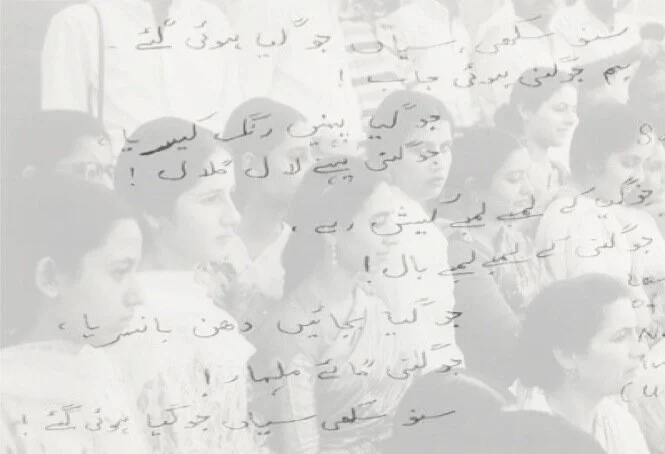 سنو سکھی، سیاں جوگیا ہوئی گئے
ہم جوگنی ہوئی جاب !
جوگیا پہنیں رنگ کیسریا،
جوگنی پہنے لال گلال !
جوگیا کے لمبے لمبے کیش رہے،
جوگنی کے لمبے لمبے بال !
جوگیا بجائیں دھن بانسریا،
جوگنی گائے ملہار !
سنو سکھی سیاں جوگیا ہوئی گئے !